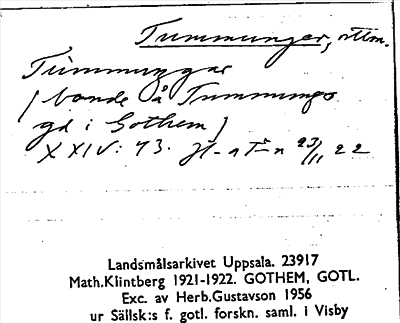 Tummunger, ottm.
Tummunggar
(bonde å Tummungs
gd i Gothem)
XXIV: 43. 23/11 22
Landsmålsarkivet Uppsala. 23917
Math.Klintberg 1921-1922. GOTHEM, GOTL.
Exc. av Herb.Gustavson 1956
ur Sällsk:s f. gotl. forskn. saml. i Visby